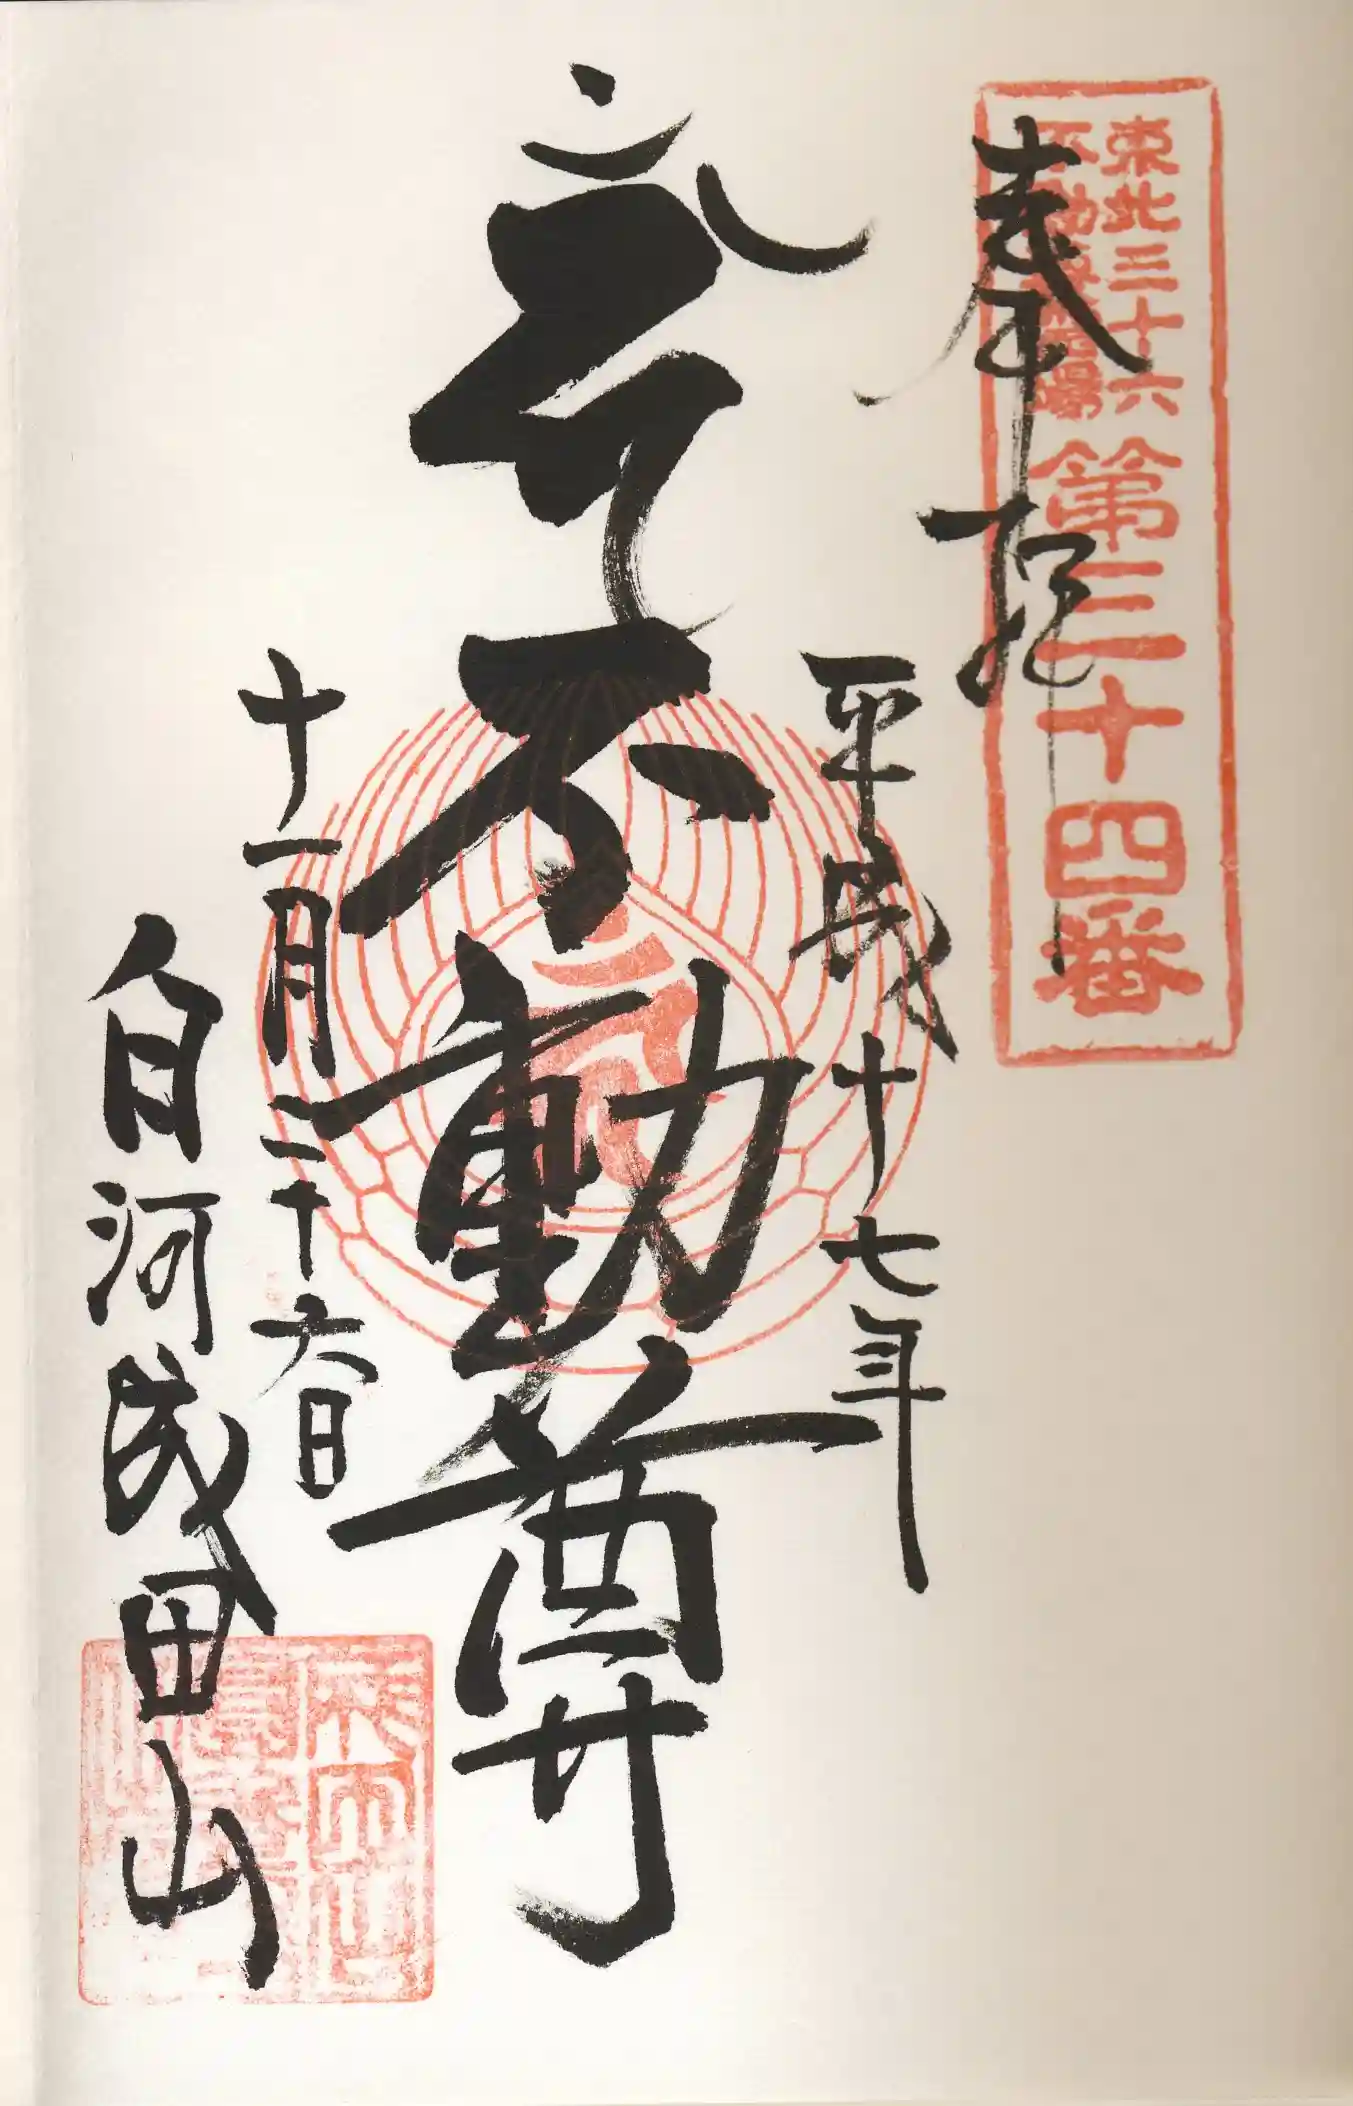 奉拝
東北三十六
不動尊霊場
第三十四番
平成十七年
不動尊
十一月二十六日
白河成田山